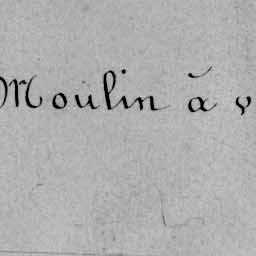 Moulin à v